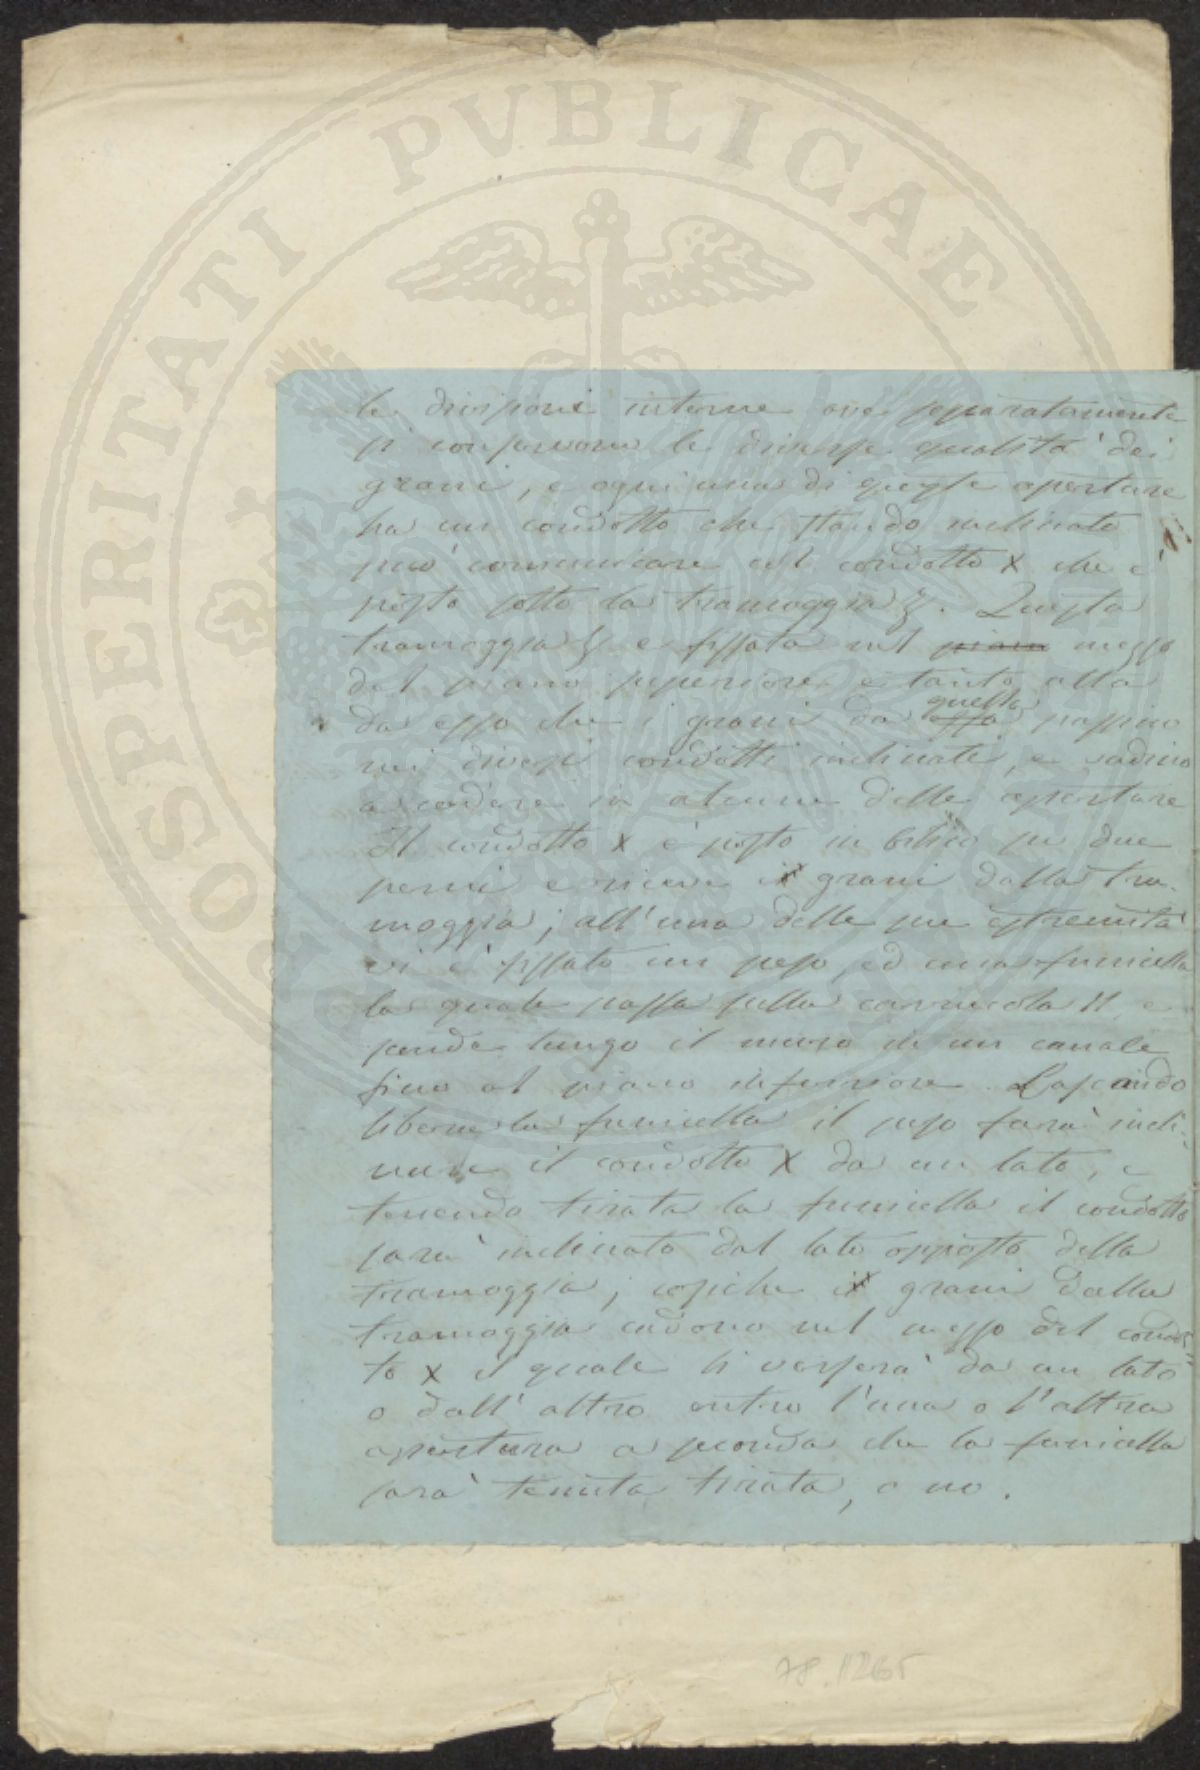 PROSPERITATI PVBLICAE
le divisioni interne ove separatamente
si conservano le diverse qualità dei
grani, e ogni una di queste aperture
ha un condotto che stando inclinato
può comunicare col condotto X che è
posto sotto la tramoggia Z. Questa
tramoggia Z è fissata nel piano mezzo
del piano superiore e tanto alta
quella
da esso che i grani da essa passino
nei diversi condotti inclinati, e vadino
a cadere in alcune delle aperture
Il condotto X è posto in bilico su due
perni e riceve i grani dalla tra-
moggia; all'una delle sue estremità
vi è fissato un peso, ed una funicella
la quale passa sulla carrucola H, e
pende lungo il muro in un canale
fino al piano inferiore. Lasciando
libera la funicella il peso farà incli-
nare il condotto X da un lato, e
tenendo tirata la funicella il condotto
sarà inclinato dal lato opposto della
tramoggia; cosiche i grani dalla
tramoggia cadono nel mezzo del condot-
to X il quale li verserà da un lato
o dall'altro entro l'una o l'altra
apertura a seconda che la funicella
sarà tenuta tirata, o no.
78.1265